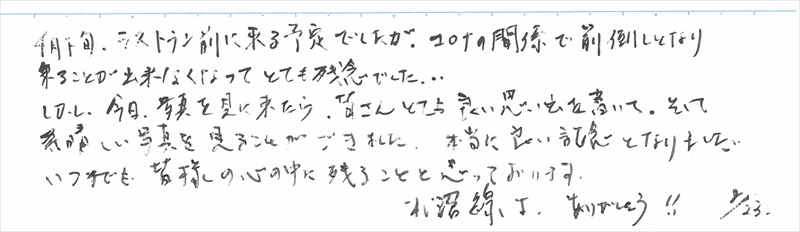 4月下旬、ラストラン前に来る予定でしたが、コロナの関係で前倒しとなり
来ることが出来なくなってとても残念でした...
しかし、今日、写真を見に来たら、皆さんとても良い思い出を書いて。そして
素晴しい写真を見ることができました。本当に良い記念となりました。
いつまでも皆様の心の中に残ることと思っております。
札沼線よ、ありがとう!! /23.